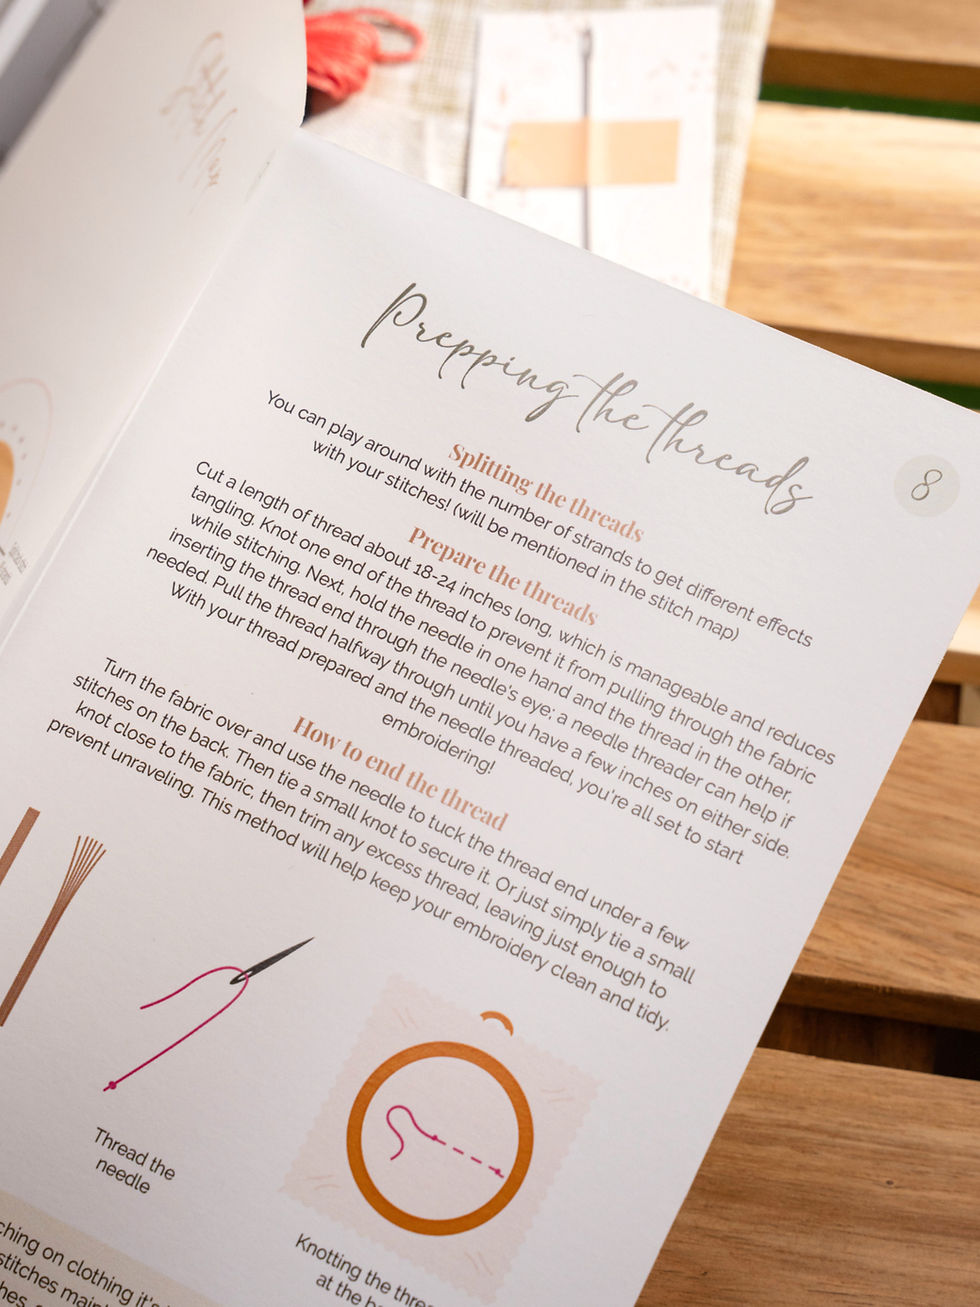 Prepping the threads
8
Splitting the threads
You can play around with the number of strands to get different effects
with your stitches! (will be mentioned in the stitch map)
Prepare the threads
Cut a length of thread about 18-24 inches long, which is manageable and reduces
tangling. Knot one end of the thread to prevent it from pulling through the fabric
while stitching. Next, hold the needle in one hand and the thread in the other,
inserting the thread end through the needle's eye; a needle threader can help if
needed. Pull the thread halfway through until you have a few inches on either side.
With your thread prepared and the needle threaded, you're all set to start
embroidering!
How to end the thread
Turn the fabric over and use the needle to tuck the thread end under a few
stitches on the back. Then tie a small knot to secure it. Or just simply tie a small
knot close to the fabric, then trim any excess thread, leaving just enough to
prevent unraveling. This method will help keep your embroidery clean and tidy.
Thread the
needle
Knotting the
at the
on clothing it's
stitches